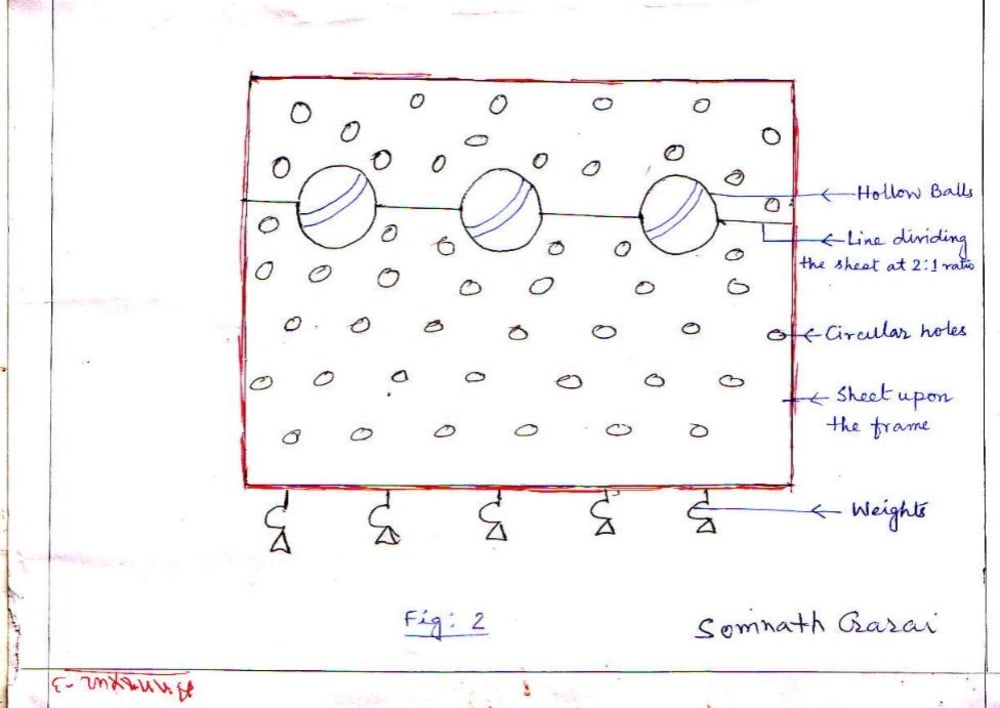 Hollow Balls
Line dividing
the sheet at 2:1 ratio
Circular holes
Sheet upon
the frame
Weights
Fig: 2
Somnath
Annexur-3